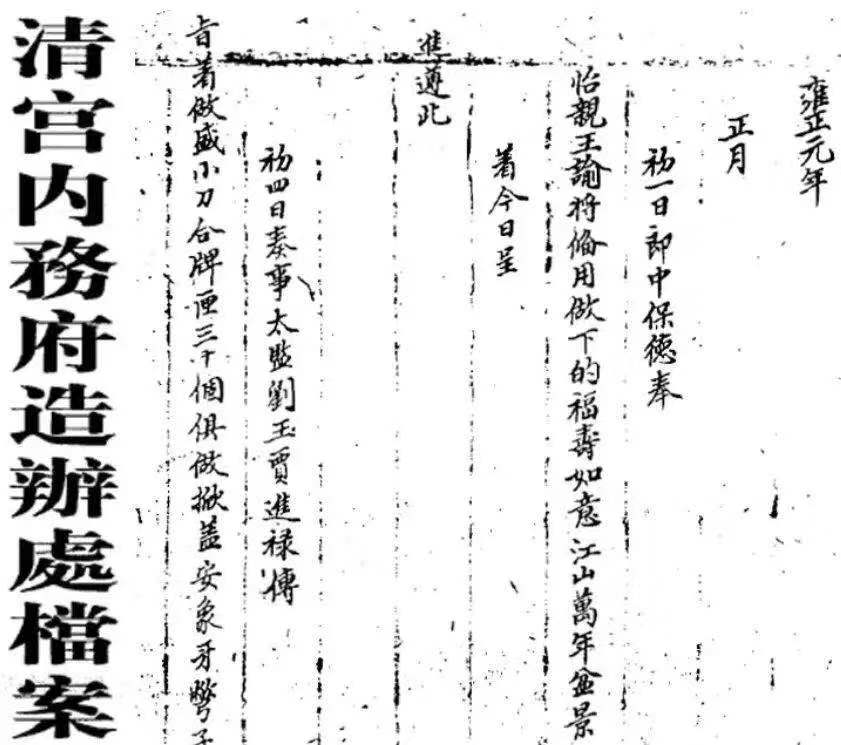 清宫内務府造辦處檔案
雍正元年
正月
初一日郎中保德奉
怡親王諭將俻用做下的福壽如意江山萬年盆景
着今日呈
進遵此
初四日奏事太監劉玉賈進禄傳
旨着做盛小刀合牌匣三十個俱做掀盖安象牙